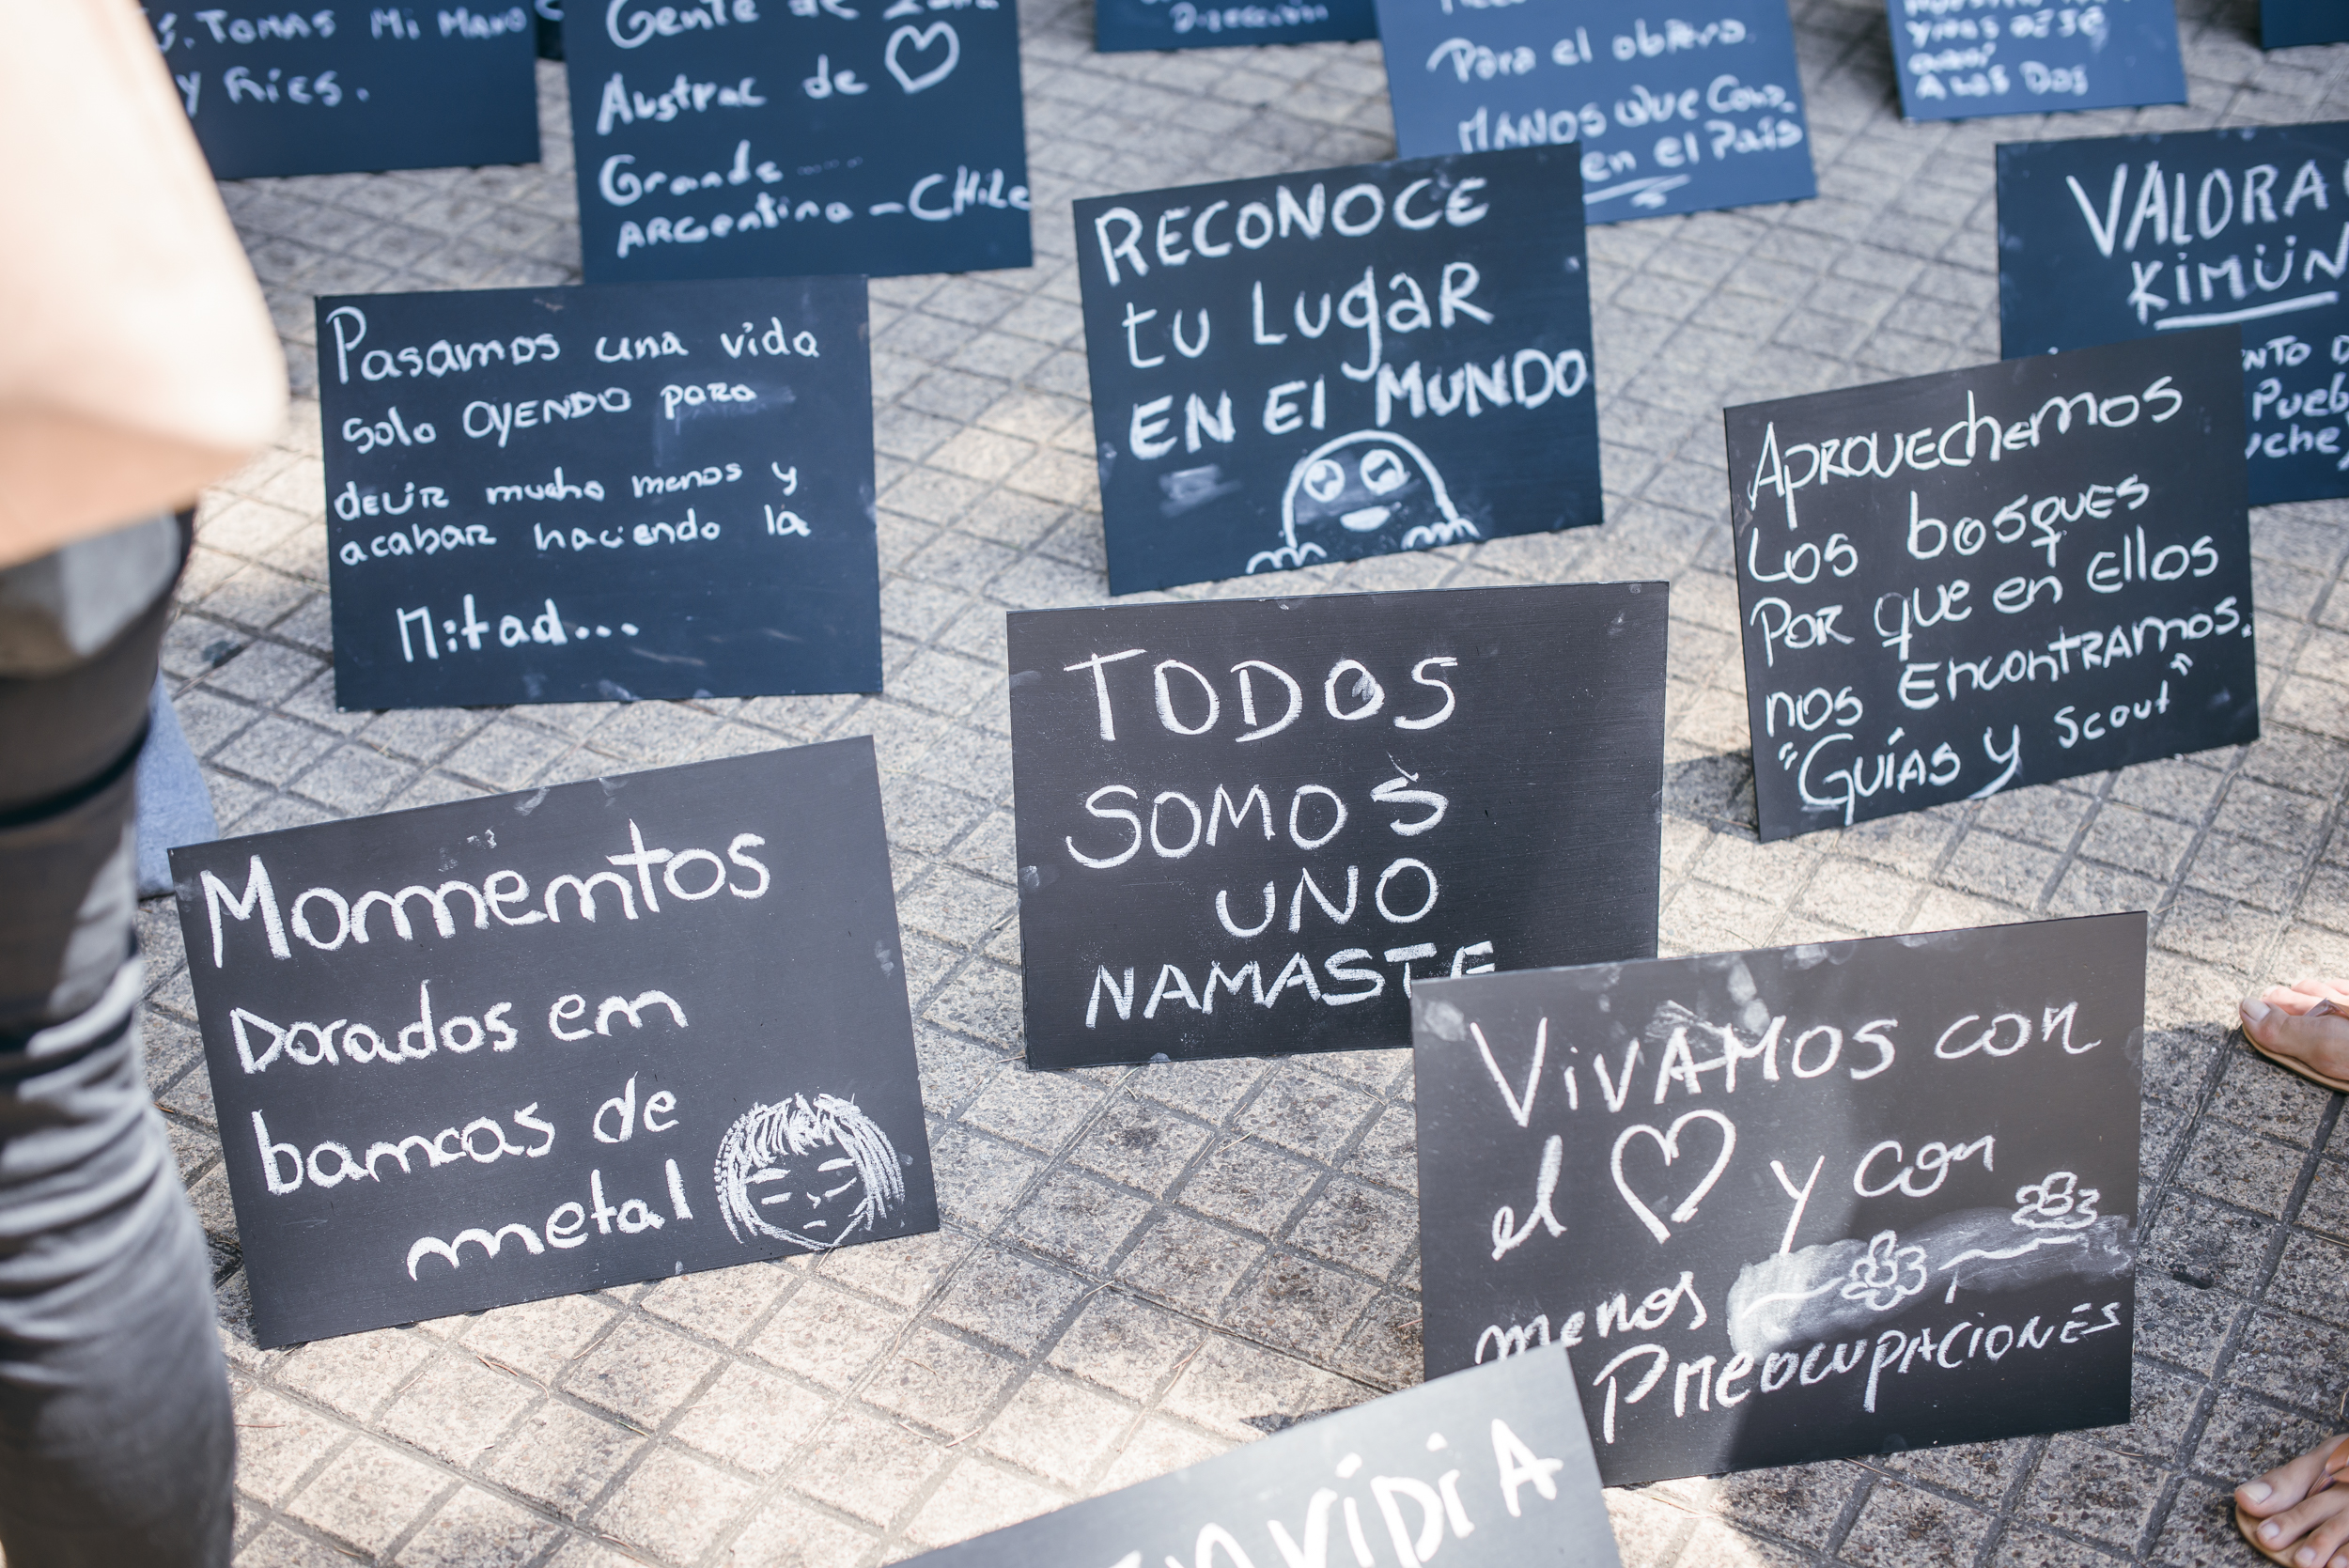 Tomas Mi Mano
y Ríes.
Gente de
Austral de
Grande
ARGentina - CHile
Dirección
Para el obrero.
MANOS QUE
en el País
A las Dos
VALORA
KIMÜN
RECONOCE
tu Lugar
EN El MUNDO
Pasamos una vida
solo OYENDO para
decir mucho menos y
acabar haciendo la
Mitad...
Aprovechemos
Los bosques
Por que en Ellos
nos Encontramos.
"Guías y Scout"
TODOS
SOMOS
UNO
NAMASTE
Mommemtos
Dorados em
bamcas de
metal
VivAMOS con
el y con
menos
PREOCUPACIONES